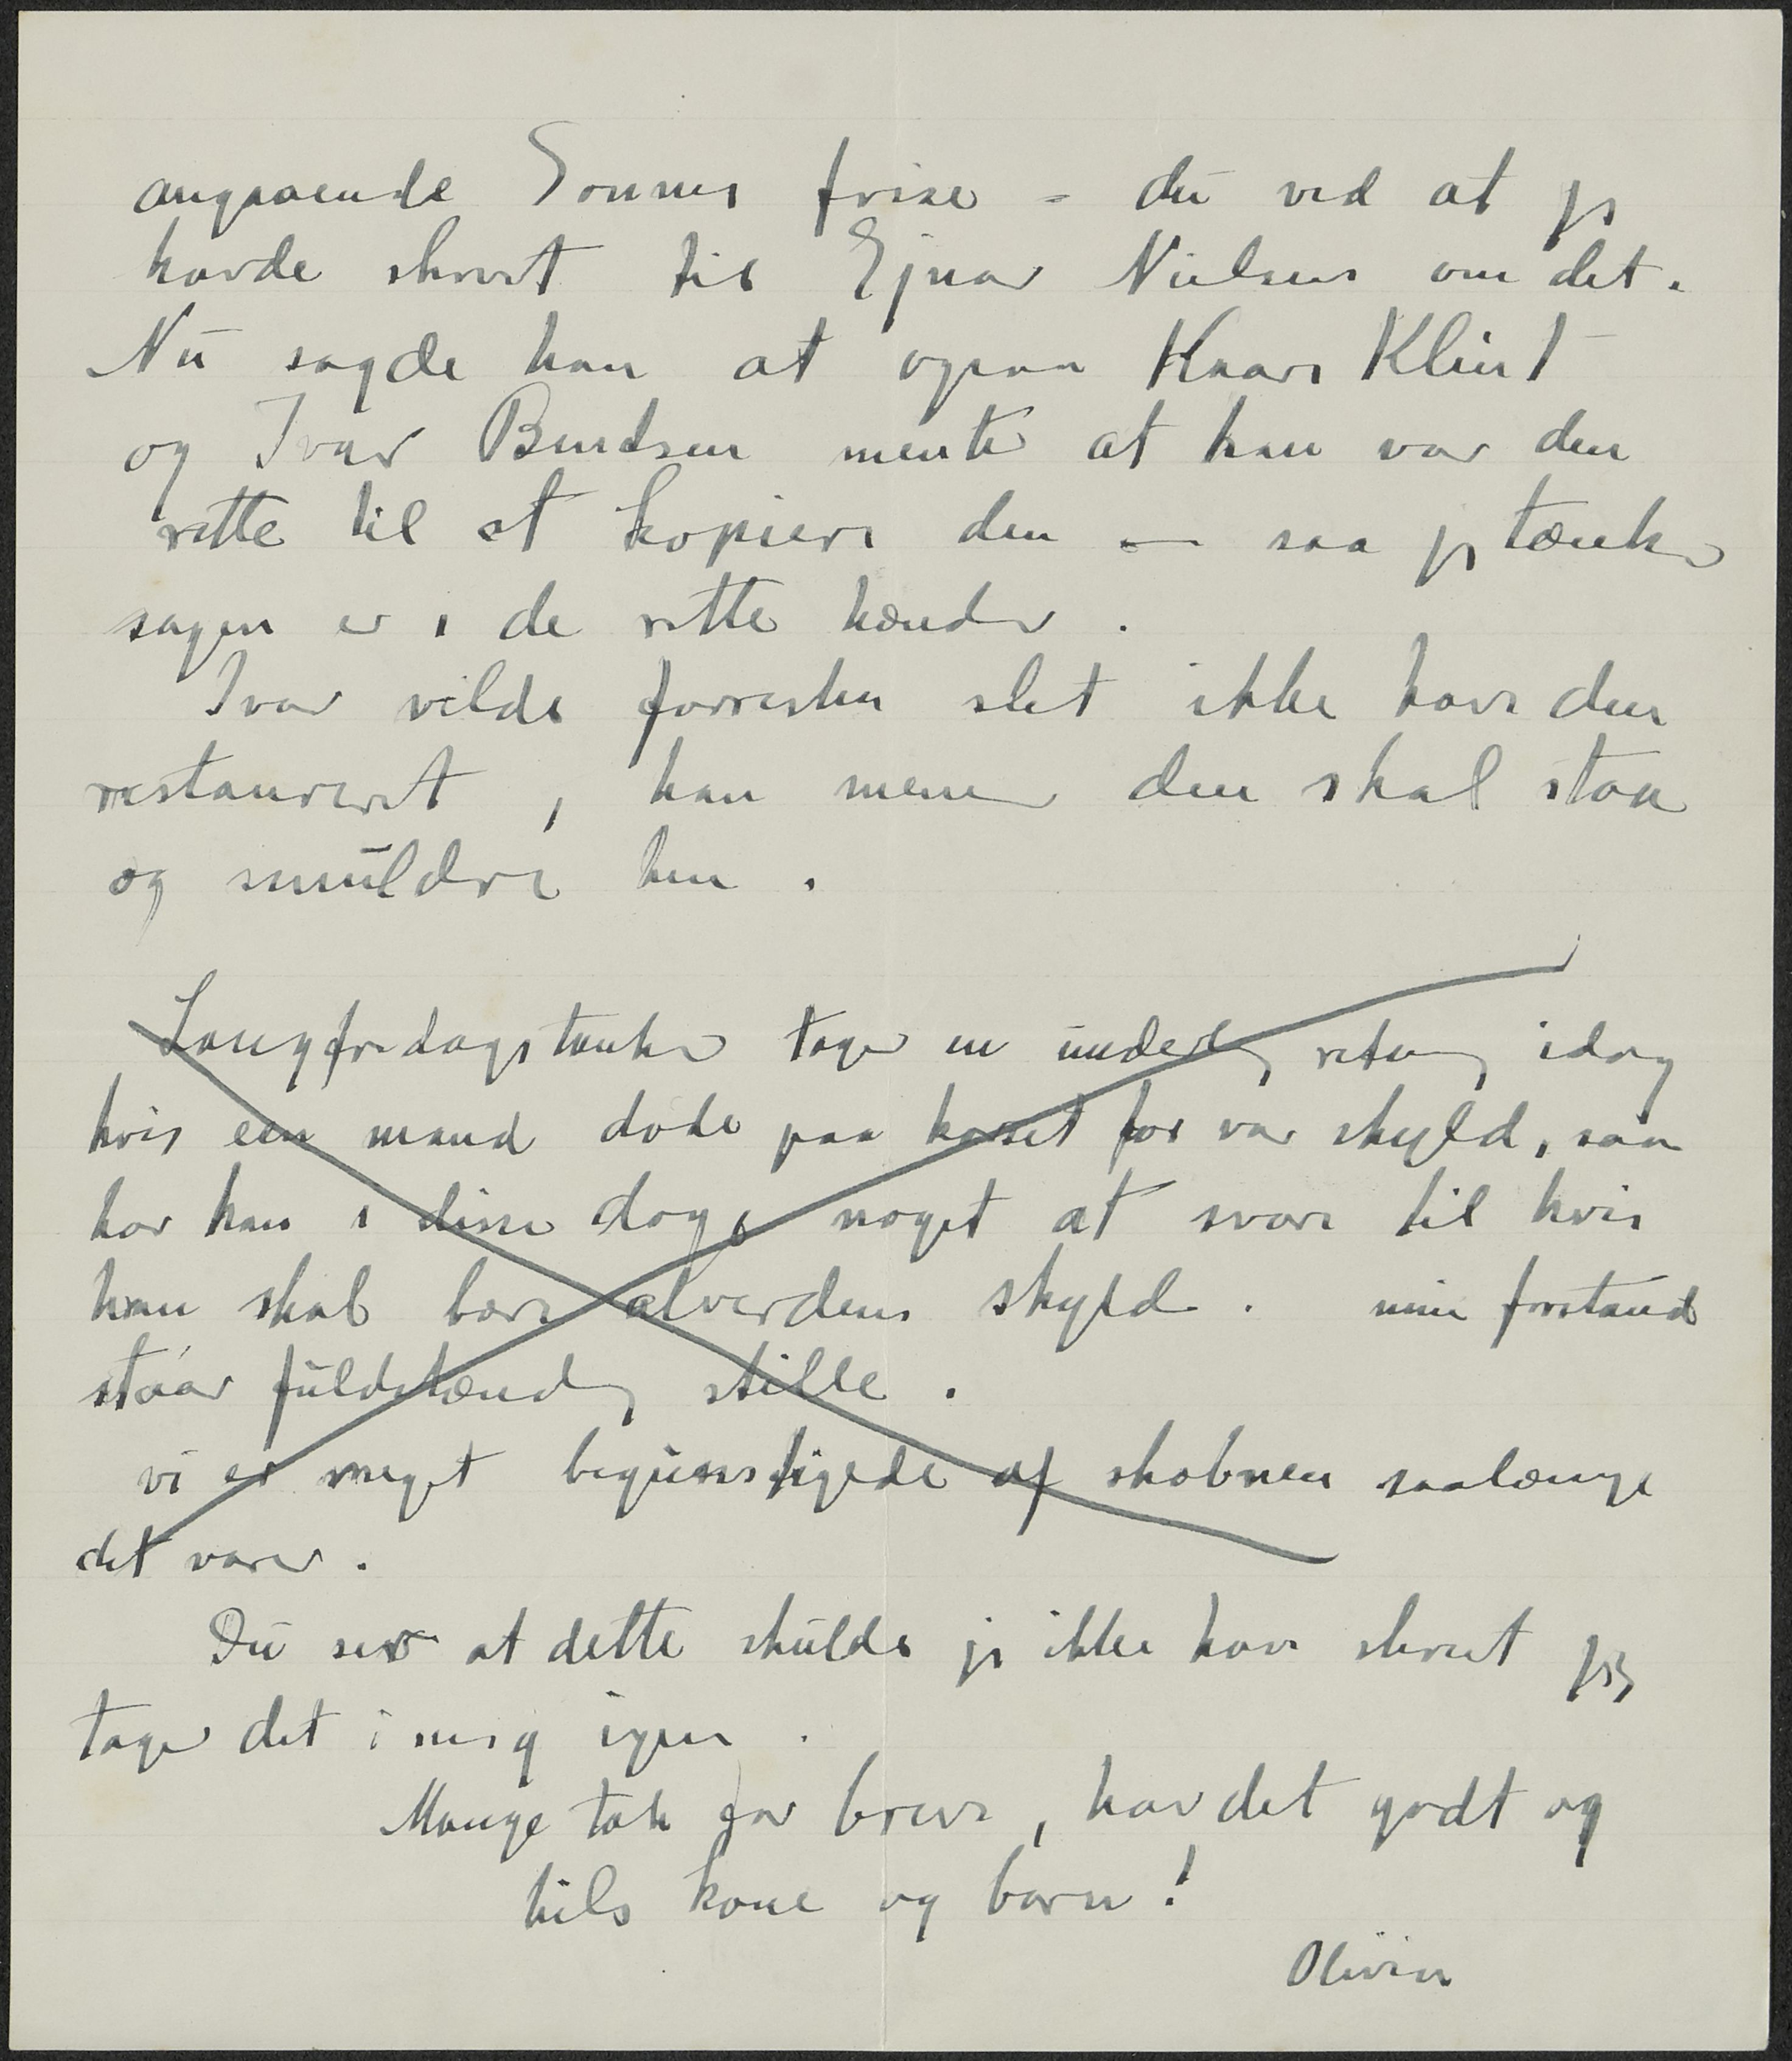 angaaende Sonnes frise - du ved at jeg
havde skrevet til Ejnar Nielsen om det.
Nu sagde han at ogsaa Kaare Klint
og Ivar Bendsen mente at han var den
rette til at kopiere den — saa jeg tænker
sagen er i de rette hænder.
Ivar vilde forresten slet ikke have den
restaureret, han mener den skal staa
og smuldre hen.
Langfredagstanker tager en underlig retning idag
hvis een mand døde paa korset for vor skyld, saa
har han i disse dage noget at svare til hvis
han skal bære alverdens skyld. min forstand
staar fuldstændig stille.
vi er meget begunstigede af skæbnen saalænge
det varer.
Du ser at dette skulde jeg ikke have skrevet jeg
tager det i mig igen.
Mange tak for brevet, hav det godt og
hils kone og børn!
Olivia